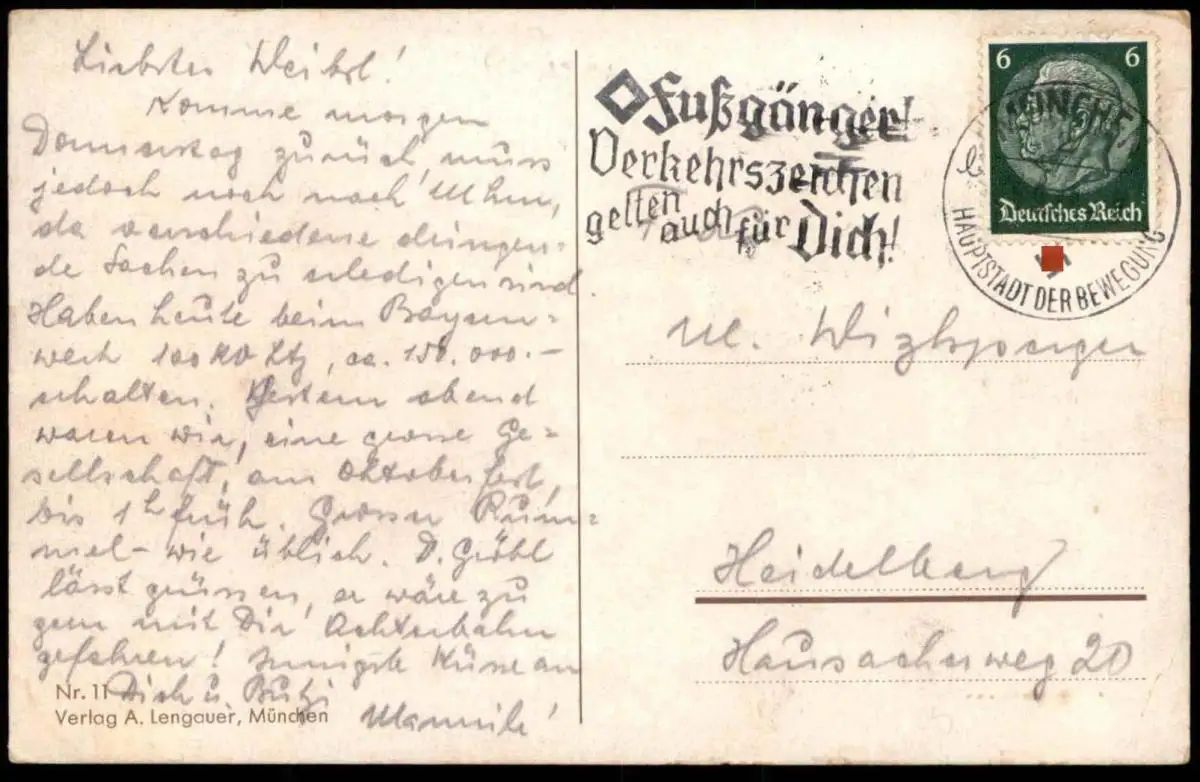 Liebstes Weiberl!
Komme morgen
Donnerstag zurück, muss
jedoch noch nach Ulm,
da verschiedene dringen=
de Sachen zu erledigen sind
Haben heute beim Bayern=
werk 100 KV Ltg, ca. 150.000.–
erhalten. Gestern abend
waren wir, eine grosse Ge=
sellschaft, am Oktoberfest,
bis 1h früh. Grosser Rum=
mel – wie üblich. D. Gröbl
lässt grüssen, er wäre zu
gern mit Dir Achterbahn
gefahren! Innigste Küsse an
Dich u. Butzi
Mannile!
Nr. 11
Verlag A. Lengauer, München
Fußgänger!
Verkehrszeichen
gelten auch für Dich!
6 6
Deutsches Reich
MÜNCHEN
HAUPTSTADT DER BEWEGUNG
Heidelberg
Hausackerweg 20